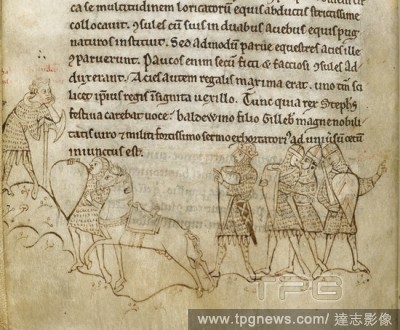 ca se multitudinem loricatorum equis abductis strictissime
collocauit. ꝯsules cū suis in duabus aciebus equis pug
naturos instituit. Sed admodū parue equestres acies ille
apparuerunt. Paucos enim secū ficti & factiosi ꝯsules ad
duxerant. Acies autem regalis maxima erat. uno tm̄ sci
licet ip̄ius regis insignita uexillo. Tunc quia rex Steph̄s
festiua carebat uoce. baldewino filio Gilleb̄ magne nobili
tatis uiro & militi fortissimo sermo exhortatoriꝰ ad uniūsum cetum
iniunctus est.
TPG
www.tpgnews.com/達志影像